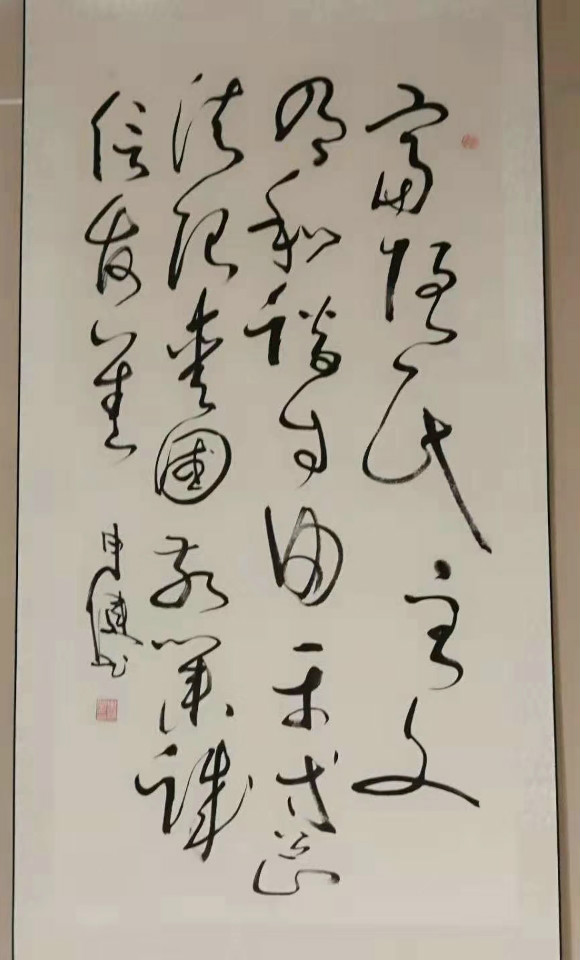 富强民主文
明和谐自由平等公正
法治爱国敬业诚
信友善